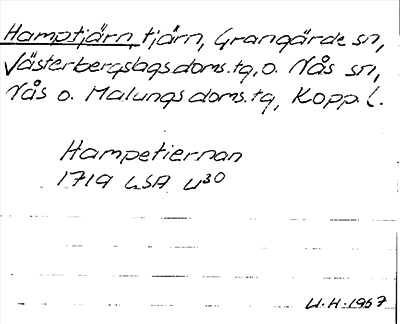 Hamptjärn, tjärn, Grangärde sn,
Västerbergslags doms.tg, o. Nås sn,
Nås o. Malungs doms.tg, Kopp. l.
Hampetiernan
1719 LSA U30
W.H. 1967